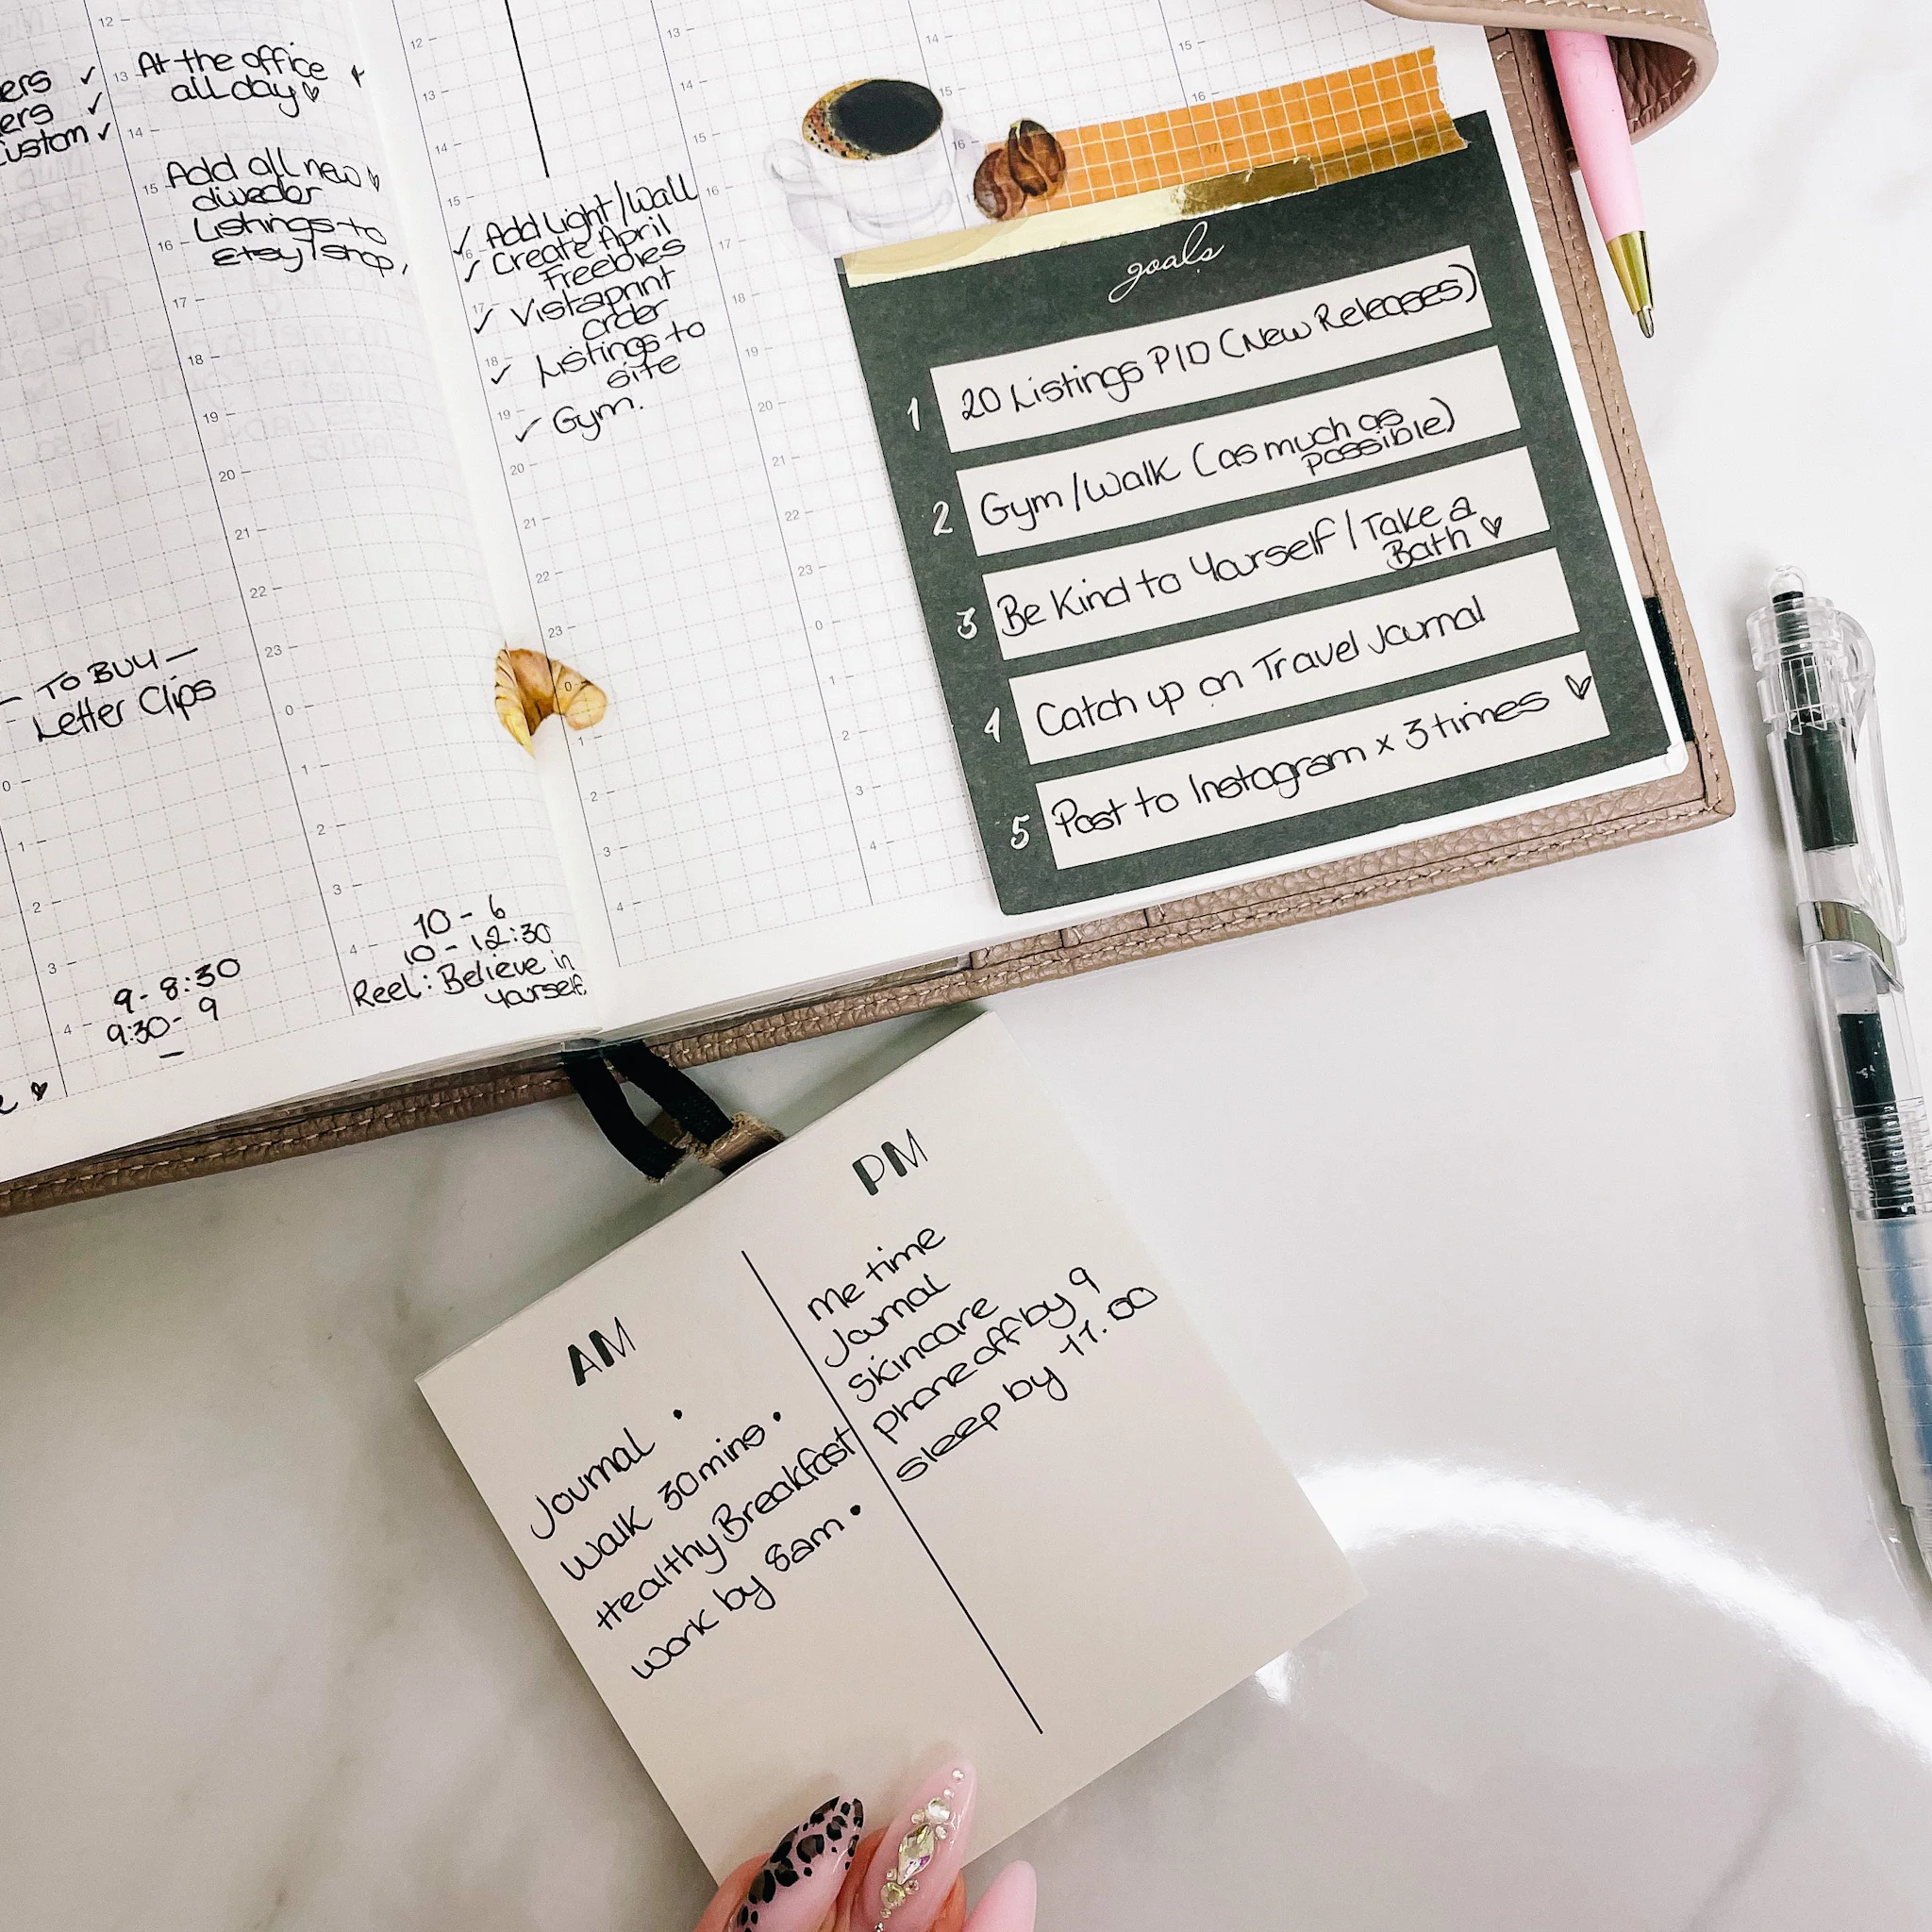 ers ✓
ers ✓
Custom ✓
At the office
all day ♡
Add all new ♡
diwedor
Listings to
Etsy/shop,
— TO BUY —
Letter Clips
9 - 8:30
9:30 - 9
—
10 - 6
10 - 12:30
Reel: Believe in
yourself
✓ Add Light/Wall
✓ Create April
Freebies
✓ Vistaprint
order
✓ Listings to
site
✓ Gym.
goals
1 20 Listings P10 (New Releases)
2 Gym/Walk (as much as
possible)
3 Be Kind to Yourself / Take a
Bath ♡
4 Catch up on Travel Journal
5 Post to Instagram x 3 times ♡
AM
Journal •
Walk 30 mins •
Healthy Breakfast
work by 8am •
PM
Me time
Journal
Skincare
phone off by 9
sleep by 11.00
12
13
14
15
16
17
18
19
20
21
22
23
0
1
2
3
4
0
1
2
3
4
12
13
14
15
16
17
18
19
20
21
22
23
0
1
2
3
4
13
14
15
16
17
18
19
20
21
22
23
0
1
2
3
4
14
15
16
15
16